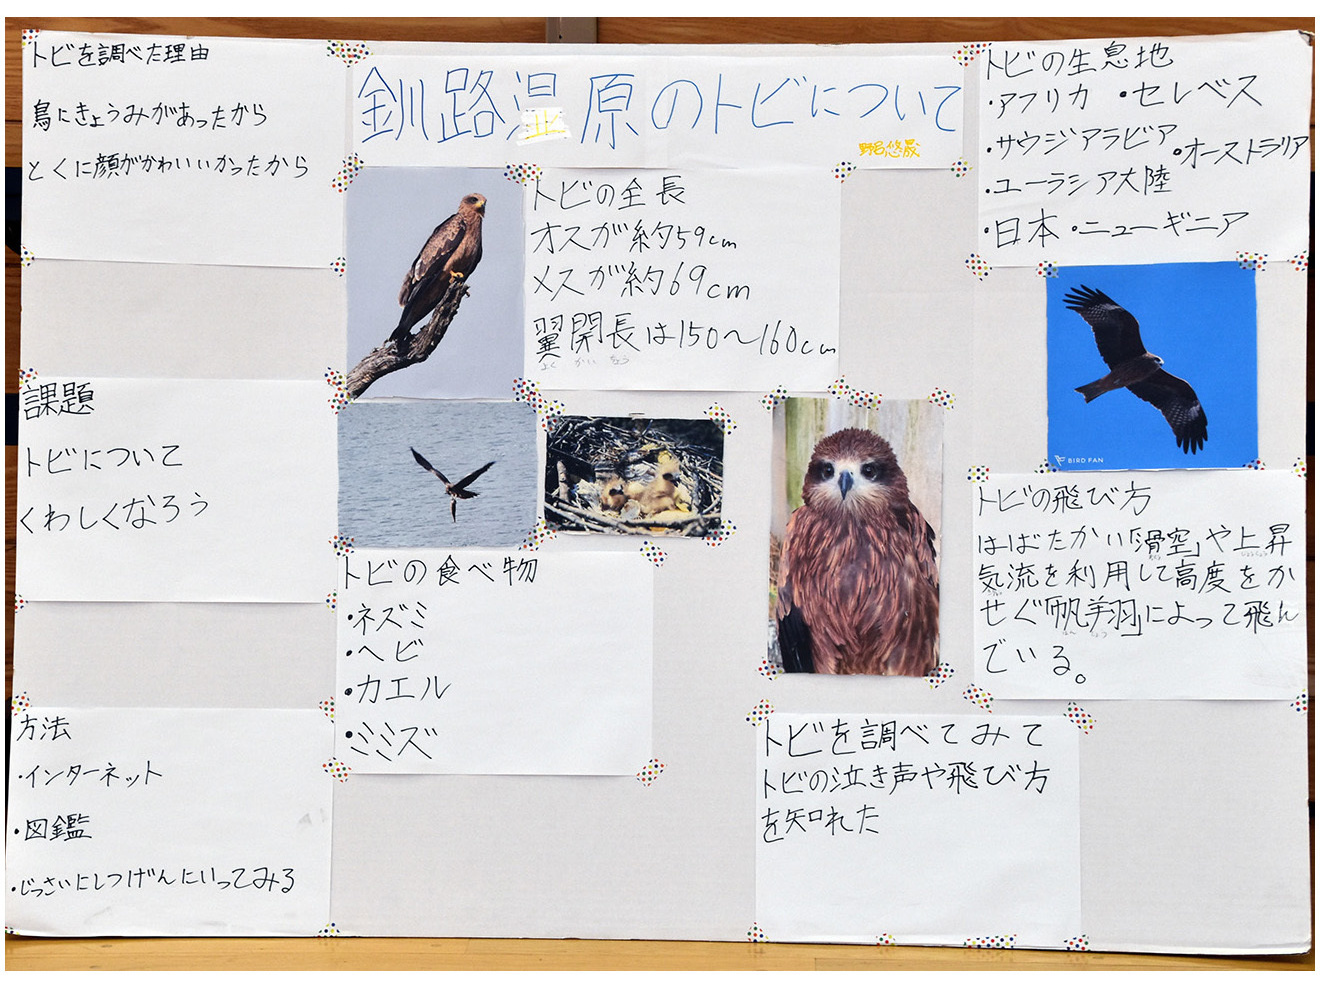 釧路湿原のトビについて
野呂悠晟
トビを調べた理由
鳥にきょうみがあったから
とくに顔がかわいいかったから
課題
トビについて
くわしくなろう
方法
・インターネット
・図鑑
・じっさいにしつげんにいってみる
トビの全長
オスが約59cm
メスが約69cm
翼開長は150〜160cm
よく かい ちょう
トビの食べ物
・ネズミ
・ヘビ
・カエル
・ミミズ
トビの生息地
・アフリカ ・セレベス
・サウジアラビア
・オーストラリア
・ユーラシア大陸
・日本・ニューギニア
BIRD FAN
トビの飛び方
はばたかい「滑空」や上昇
気流を利用して高度をか
せぐ「帆翔羽」によって飛ん
でいる。
トビを調べてみて
トビの泣き声や飛び方
を知れた